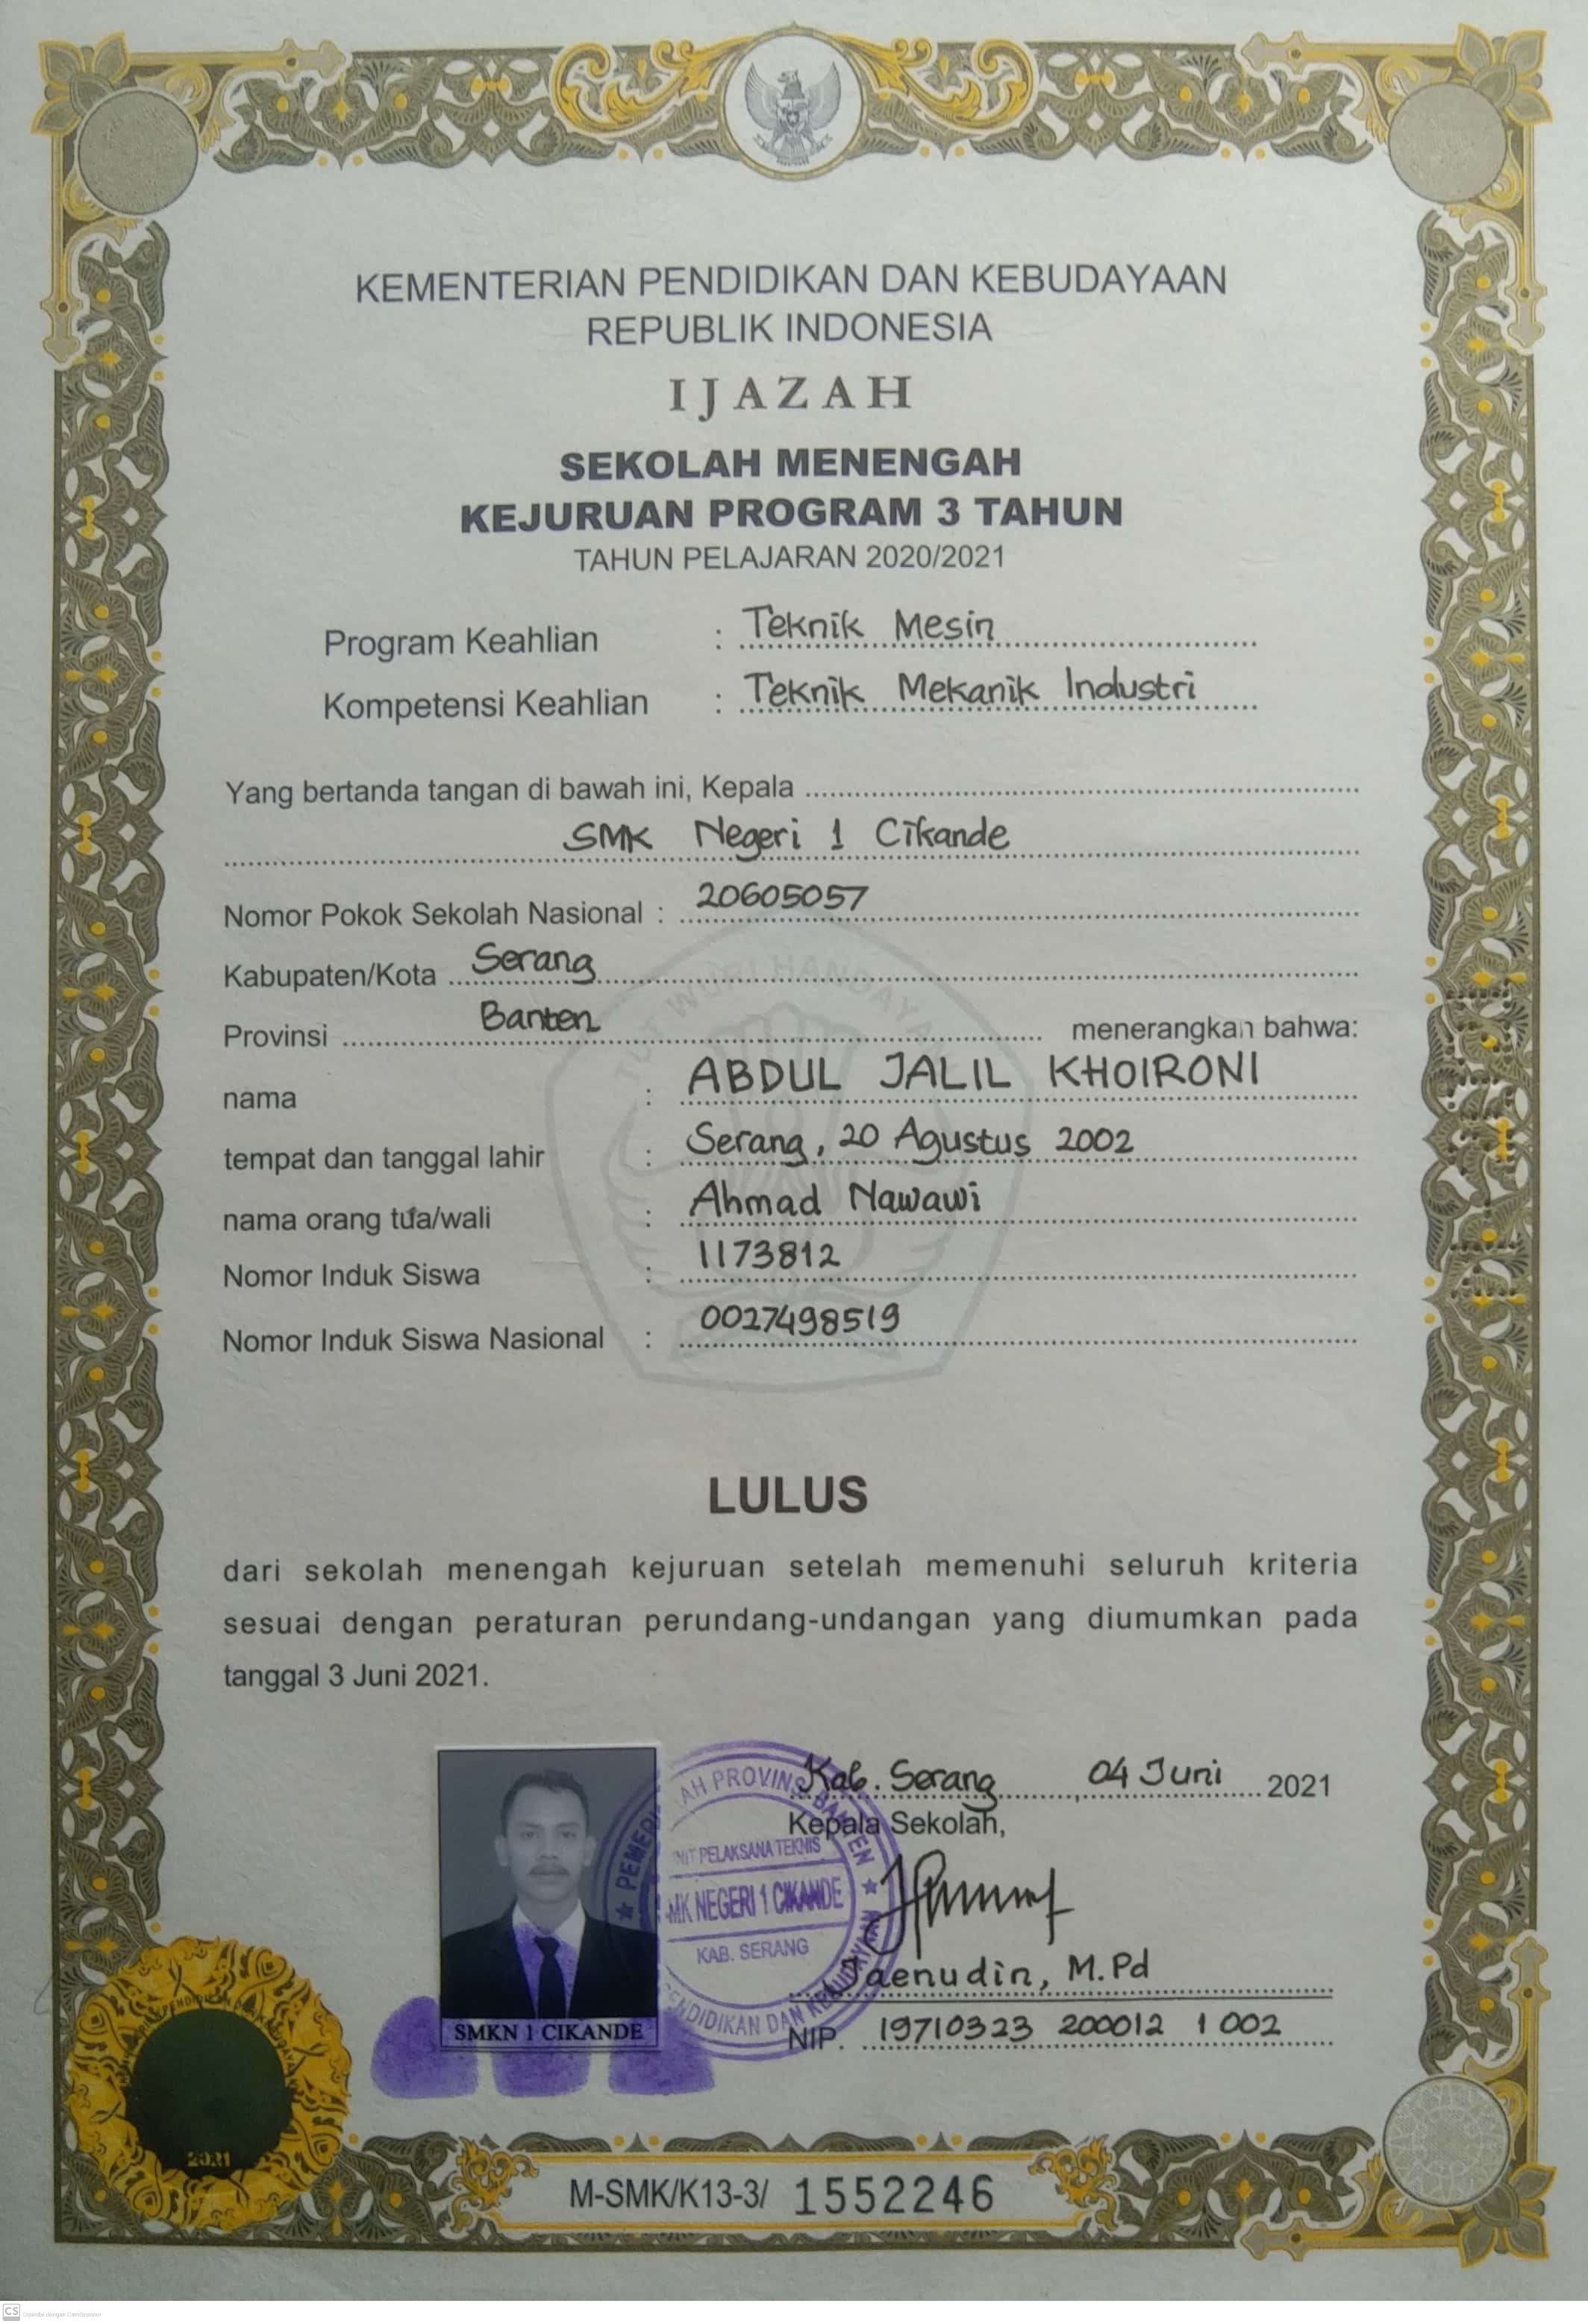 KEMENTERIAN PENDIDIKAN DAN KEBUDAYAAN
REPUBLIK INDONESIA
IJAZAH
SEKOLAH MENENGAH
KEJURUAN PROGRAM 3 TAHUN
TAHUN PELAJARAN 2020/2021
Program Keahlian : Teknik Mesin
Kompetensi Keahlian : Teknik Mekanik Industri
Yang bertanda tangan di bawah ini, Kepala
SMK Negeri 1 Cikande
Nomor Pokok Sekolah Nasional : 20605057
Kabupaten/Kota Serang
Provinsi Banten menerangkan bahwa:
nama : ABDUL JALIL KHOIRONI
tempat dan tanggal lahir : Serang, 20 Agustus 2002
nama orang tua/wali : Ahmad Nawawi
Nomor Induk Siswa : 1173812
Nomor Induk Siswa Nasional : 0027498519
LULUS
dari sekolah menengah kejuruan setelah memenuhi seluruh kriteria
sesuai dengan peraturan perundang-undangan yang diumumkan pada
tanggal 3 Juni 2021.
Kab. Serang, 04 Juni 2021
Kepala Sekolah,
PELAKSANA TEKNIS
NEGERI 1 CIKANDE
KAB. SERANG
Jaenudin, M.Pd
NIP. 19710323 200012 1 002
SMKN 1 CIKANDE
2021
M-SMK/K13-3/ 1552246
CS